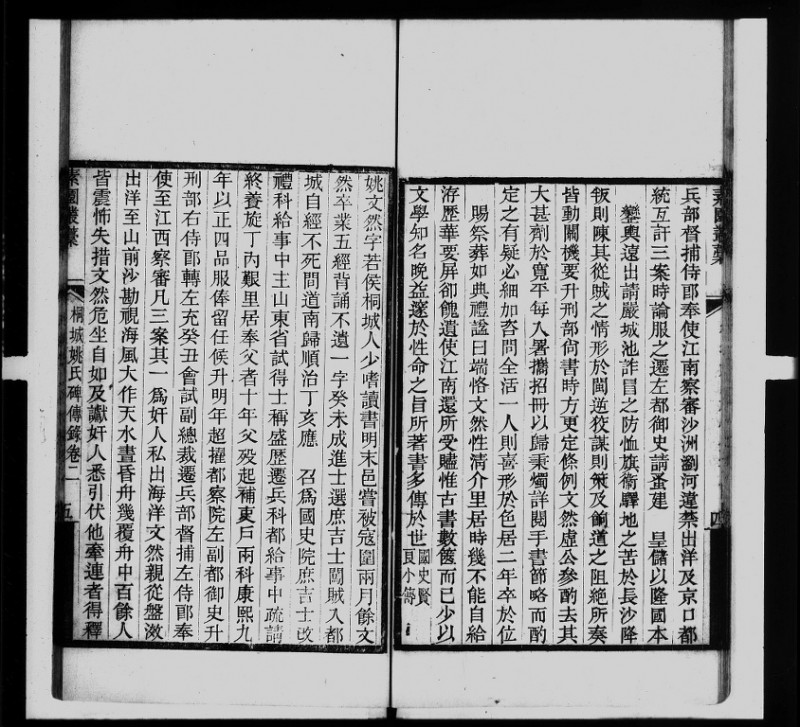 兵部督捕侍郎奉使江南察審沙洲瀏河違禁出洋及京口都
統互訐三案時論服之遷左都御史請蚤建　皇儲以隆國本
鑾輿遠出請嚴城池詐冒之防恤旗衞驛地之苦於長沙降
叛則陳其從賊之情形於閩逆狡謀則策及餉道之阻絶所奏
皆動關機要升刑部尙書時方更定條例文然虛公參酌去其
大甚劑於寬平每入署攜招冊以歸秉燭詳閱手書節略而酌
定之有疑必細加咨問全活一人則喜形於色居二年卒於位
賜祭葬如典禮諡曰端恪文然性淸介里居時幾不能自給
洊歷華要屏卻餽遺使江南還所受贐惟古書數篋而已少以
文學知名晚益邃於性命之旨所著書多傳於世國史賢良小傳
四
姚文然字若侯桐城人少嗜讀書明末邑嘗被寇圍兩月餘文
然卒業五經背誦不遺一字癸未成進士選庶吉士闖賊入都
城自經不死間道南歸順治丁亥應　召爲國史院庶吉士改
禮科給事中主山東省試得士稱盛歷遷兵科都給事中疏請
終養旋丁內艱里居奉父者十年父歿起補東戶兩科康熙九
年以正四品服俸留任候升明年超擢都察院左副都御史升
刑部右侍郎轉左充癸丑會試副總裁遷兵部督捕左侍郎奉
使至江西察審凡三案其一爲奸人私出海洋文然親從盤滶
出洋至山前沙勘視海風大作天水晝昏舟幾覆舟中百餘人
皆震怖失措文然危坐自如及讞奸人悉引伏他牽連者得釋
素園叢稾　桐城姚氏碑傳錄卷二　五